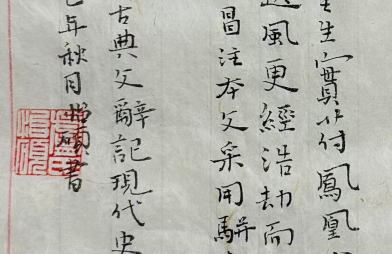 生寶苻鳳凰
風更經浩劫而
冒注本文采用駢
古典文辭記現代史
年秋月 書